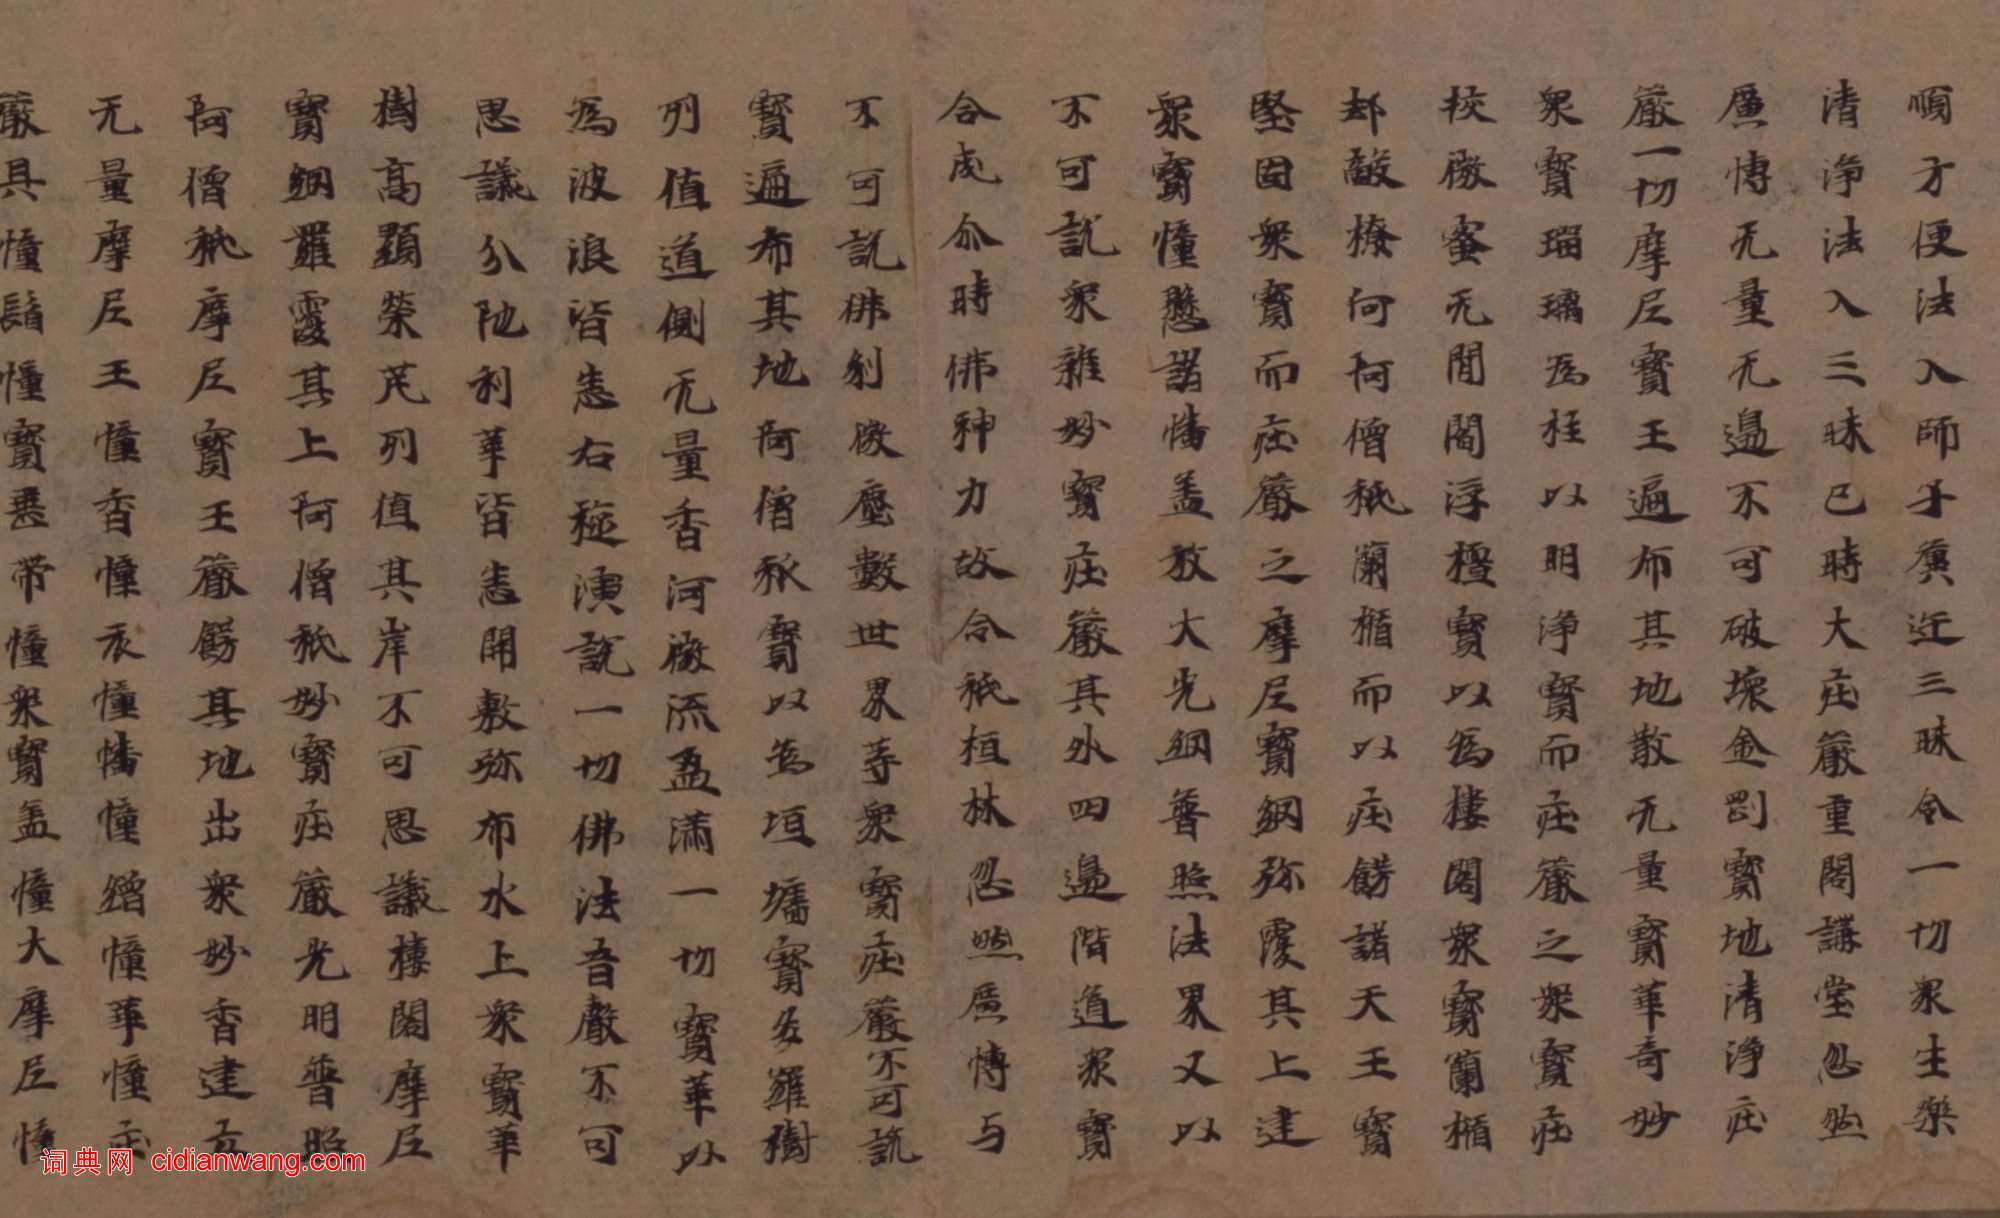 順方便法入師子奮迅三昧令一切衆生樂
清淨法入三昧已時大庄嚴重閣講堂忽然
廣博无量无邊不可破壞金剛寶地清淨庄
嚴一切摩尼寶王遍布其地散无量寶華奇妙
衆寶瑠璃為柱以明淨寶而庄嚴之衆寶庄
挍微蜜无間閻浮檀寶以為樓閣衆寶蘭楯
却敵橑何阿僧祇蘭楯而以庄餝諸天王寶
堅固衆寶而庄嚴之摩尼寶網弥覆其上建
衆寶幢懸諸幡盖放大光網普照法界又以
不可說衆雜妙寶庄嚴其外四邊階道衆寶
合成尒時佛神力故令祇桓林忽然廣博与
不可說佛刹微塵數世界等衆寶庄嚴不可說
寶遍布其地阿僧祇寶以為垣墻寶多羅樹
列值道側无量香河微流盈滿一切寶華以
為波浪皆悉右旋演說一切佛法音聲不可
思議分陁利華皆悉開敷弥布水上衆寶華
樹高顯榮茂列值其岸不可思議樓閣摩尼
寶網羅覆其上阿僧祇妙寶庄嚴光明普照
阿僧祇摩尼寶王嚴餝其地出衆妙香建立
无量摩尼王幢香幢衣幢幡幢繒幢華幢庄
嚴具幢鬘幢寶垂帶幢衆寶盖幢大摩尼幢
词典网 cidianwang.com